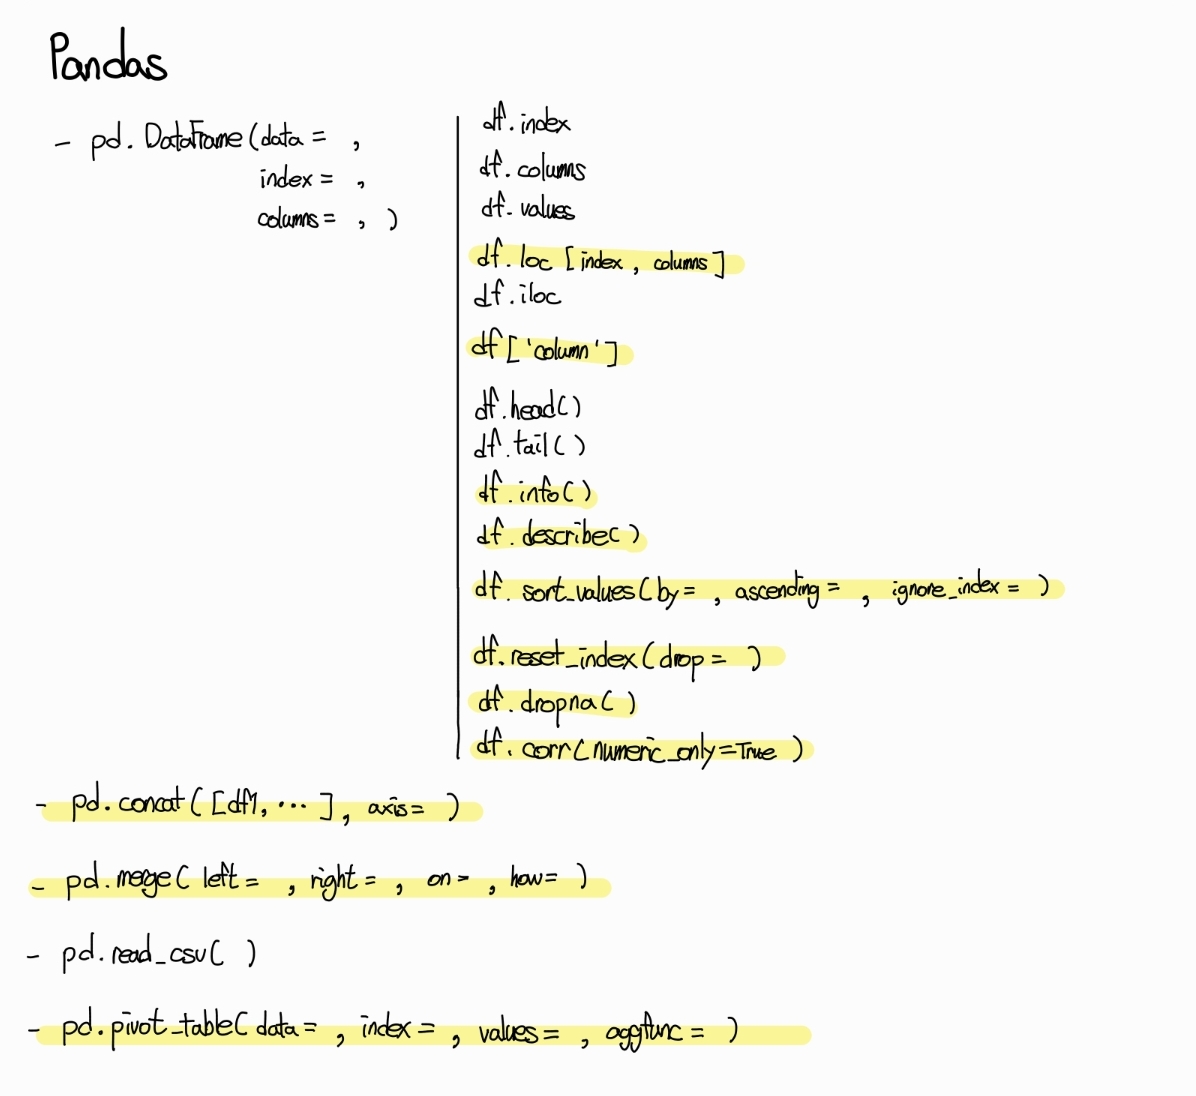 Pandas
- pd. DataFrame (data = ,
index = ,
columns = , )
df. index
df. columns
df. values
df. loc [index , columns]
df. iloc
df ['column']
df.head()
df.tail()
df.info()
df. describe()
df. sort_values (by = , ascending = , ignore_index = )
df. reset_index (drop = )
df. dropna ( )
df. corr (numeric_only=True )
- pd. concat ( [df1, ... ] , axis = )
- pd. merge ( left = , right = , on = , how = )
- pd. read_csv ( )
- pd. pivot_table ( data = , index = , values = , aggfunc = )